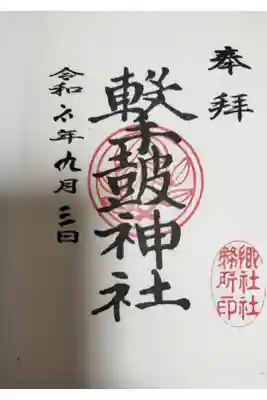 奉拝
撃鼓神社
令和六年九月三日
郷社社務所印